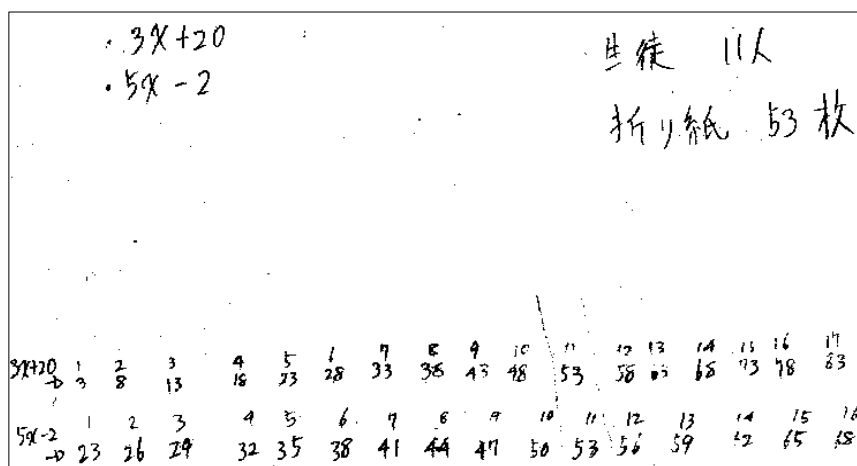 ・3x+20
・5x-2
生徒 11人
折り紙 53枚
3x+20 1 2 3 4 5 6 7 8 9 10 11 12 13 14 15 16 17
→ 3 8 13 18 23 28 33 38 43 48 53 58 63 68 73 78 83
5x-2 1 2 3 4 5 6 7 8 9 10 11 12 13 14 15 16
→ 23 26 29 32 35 38 41 44 47 50 53 56 59 62 65 68